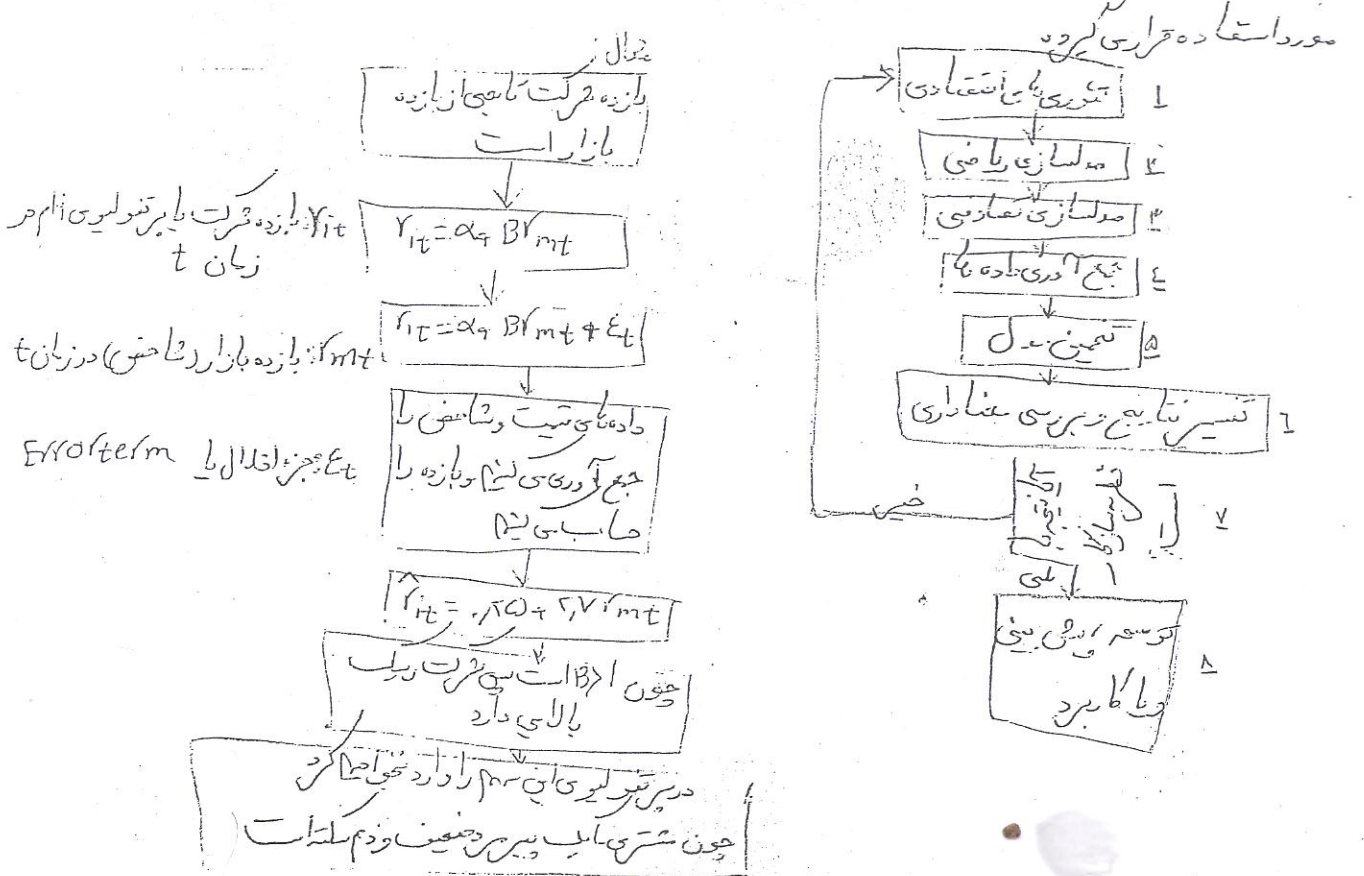 مورد استفاده قرار می گیرد
۱ تئوری یا با اقتصادی
۲ مدلسازی ریاضی
۳ مدلسازی تصادفی
٤ جمع آوری داده ها
۵ تخمین مدل
٦ تفسیر نتایج و بررسی معناداری
۷
خیر
بلی
۸ توسعه، پیش بینی
و یا کاربرد
مثال:
بازده شرکت تابعی از بازده
بازار است
rit = α + Brmt
rit: بازده شرکت یا پرتفولیوی iام در
زمان t
rit = α + Brmt + εt
rmt: بازده بازار (شاخص) در زمان t
داده های قیمت و شاخص را
جمع آوری می کنیم و بازده را
حساب می کنیم
εt: جزء اخلال یا Error term
r̂it = ۰,۲۵ + ۲,۷ rmt
چون ۱<B است پس شرکت ریسک
بالایی دارد
در پرتفولیوی این سهم را وارد نخواهیم کرد
چون مشتری ما یک پیرمرد ضعیف و دم سکته است